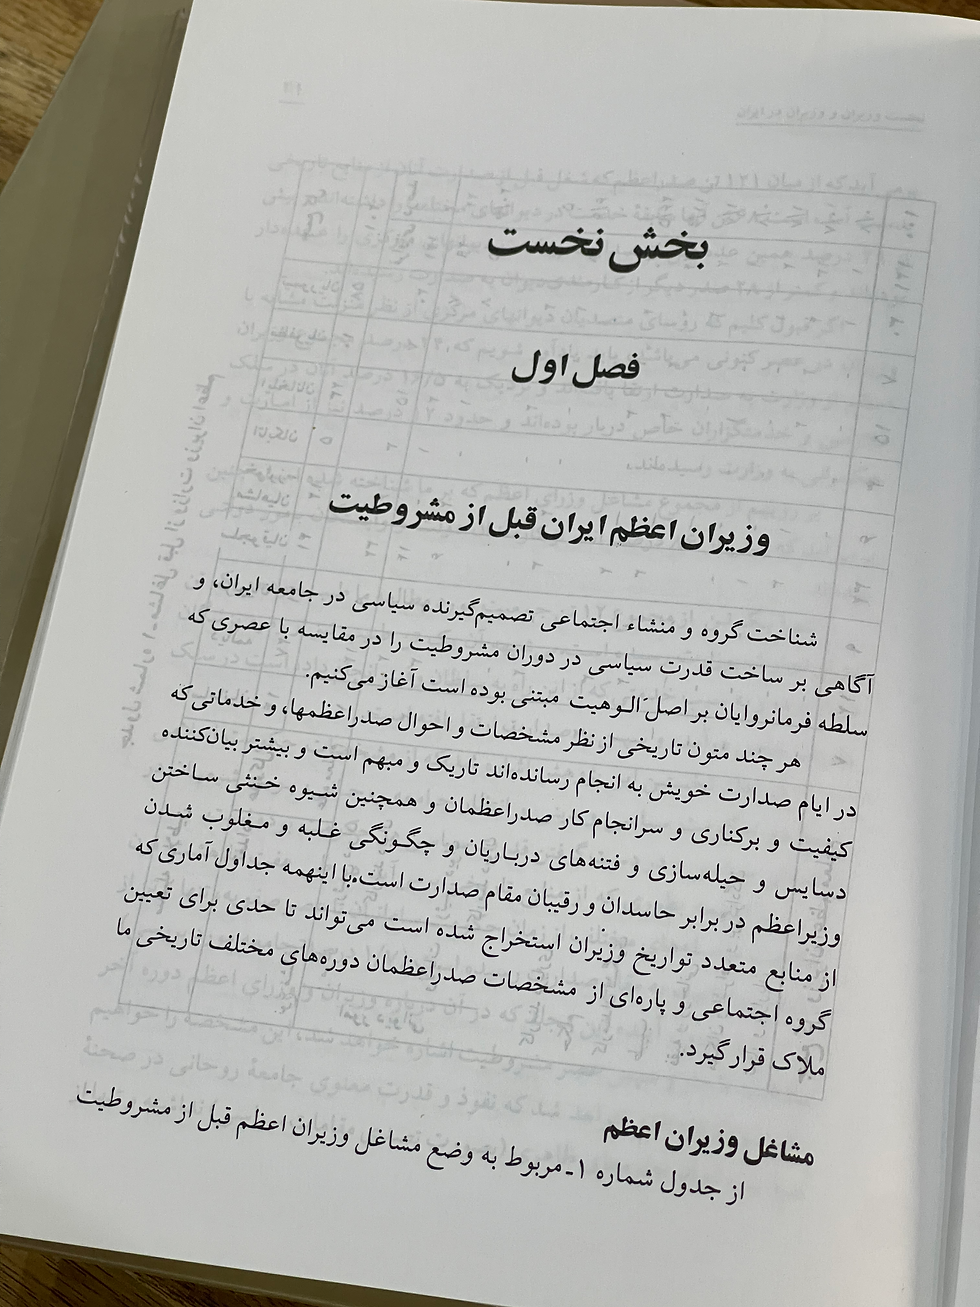 بخش نخست
فصل اول
وزیران اعظم ایران قبل از مشروطیت
شناخت گروه و منشاء اجتماعی تصمیم‌گیرنده سیاسی در جامعه ایران، و
آگاهی بر ساخت قدرت سیاسی در دوران مشروطیت را در مقایسه با عصری که
سلطه فرمانروایان بر اصل الوهیت مبتنی بوده است آغاز می‌کنیم.
هر چند متون تاریخی از نظر مشخصات و احوال صدراعظمها، و خدماتی که
در ایام صدارت خویش به انجام رسانده‌اند تاریک و مبهم است و بیشتر بیان‌کننده
کیفیت و برکناری و سرانجام کار صدراعظمان و همچنین شیوه خنثی ساختن
دسایس و حیله‌سازی و فتنه‌های درباریان و چگونگی غلبه و مغلوب شدن
وزیراعظم در برابر حاسدان و رقیبان مقام صدارت است. با اینهمه جداول آماری که
از منابع متعدد تواریخ وزیران استخراج شده است می‌تواند تا حدی برای تعیین
گروه اجتماعی و پاره‌ای از مشخصات صدراعظمان دوره‌های مختلف تاریخی ما
ملاک قرار گیرد.
مشاغل وزیران اعظم
از جدول شماره ۱ـ مربوط به وضع مشاغل وزیران اعظم قبل از مشروطیت